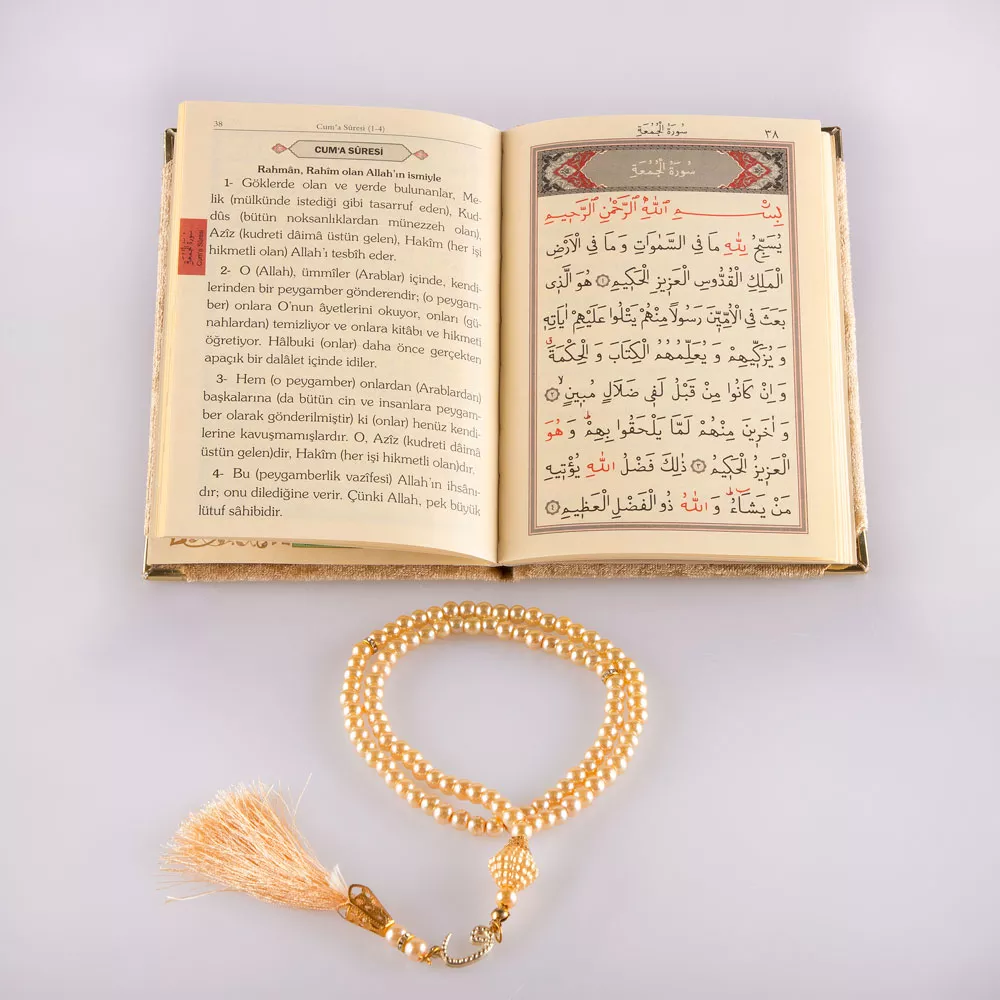 38
Cum'a Sûresi (1-4)
CUM'A SÛRESİ
Rahmân, Rahîm olan Allah'ın ismiyle
1- Göklerde olan ve yerde bulunanlar, Me-
lik (mülkünde istediği gibi tasarruf eden), Kud-
dûs (bütün noksanlıklardan münezzeh olan),
Azîz (kudreti dâimâ üstün gelen), Hakîm (her işi
hikmetli olan) Allah'ı tesbîh eder.
2- O (Allah), ümmîler (Arablar) içinde, kendi-
lerinden bir peygamber gönderendir; (o peygam-
ber) onlara O'nun âyetlerini okuyor, onları (gü-
nahlardan) temizliyor ve onlara kitâbı ve hikmeti
öğretiyor. Hâlbuki (onlar) daha önce gerçekten
apaçık bir dalâlet içinde idiler.
3- Hem (o peygamber) onlardan (Arablardan)
başkalarına (da bütün cin ve insanlara peygam-
ber olarak gönderilmiştir) ki (onlar) henüz kendi-
lerine kavuşmamışlardır. O, Azîz (kudreti dâimâ
üstün gelen)dir, Hakîm (her işi hikmetli olan)dır.
4- Bu (peygamberlik vazîfesi) Allah'ın ihsânı-
dır; onu dilediğine verir. Çünki Allah, pek büyük
lütuf sâhibidir.
سُورَةُ الْجُمُعَةِ
Cum'a Sûresi
سُورَةُ الْجُمُعَةِ
٣٨
سُورَةُ الْجُمُعَةِ
بِسْمِ اللّٰهِ الرَّحْمٰنِ الرَّحِيمِ
يُسَبِّحُ لِلّٰهِ مَا فِى السَّمٰوَاتِ وَ مَا فِى الْاَرْضِ
الْمَلِكِ الْقُدُّوسِ الْعَزِيزِ الْحَكِيمِ ۝١ هُوَ الَّذِى
بَعَثَ فِى الْاُمِّيّ۪نَ رَسُولًا مِنْهُمْ يَتْلُوا عَلَيْهِمْ اٰيَاتِه۪
وَ يُزَكّ۪يهِمْ وَ يُعَلِّمُهُمُ الْكِتَابَ وَ الْحِكْمَةَ ۗ
وَ اِنْ كَانُوا مِنْ قَبْلُ لَفِى ضَلَالٍ مُب۪ينٍ ۙ ۝٢
وَ اٰخَر۪ينَ مِنْهُمْ لَمَّا يَلْحَقُوا بِهِمْ ۜ وَ هُوَ
الْعَز۪يزُ الْحَك۪يمُ ۝٣ ذٰلِكَ فَضْلُ اللّٰهِ يُؤْت۪يهِ
مَنْ يَشَٓاءُ ۜ وَ اللّٰهُ ذُو الْفَضْلِ الْعَظ۪يمِ ۝٤